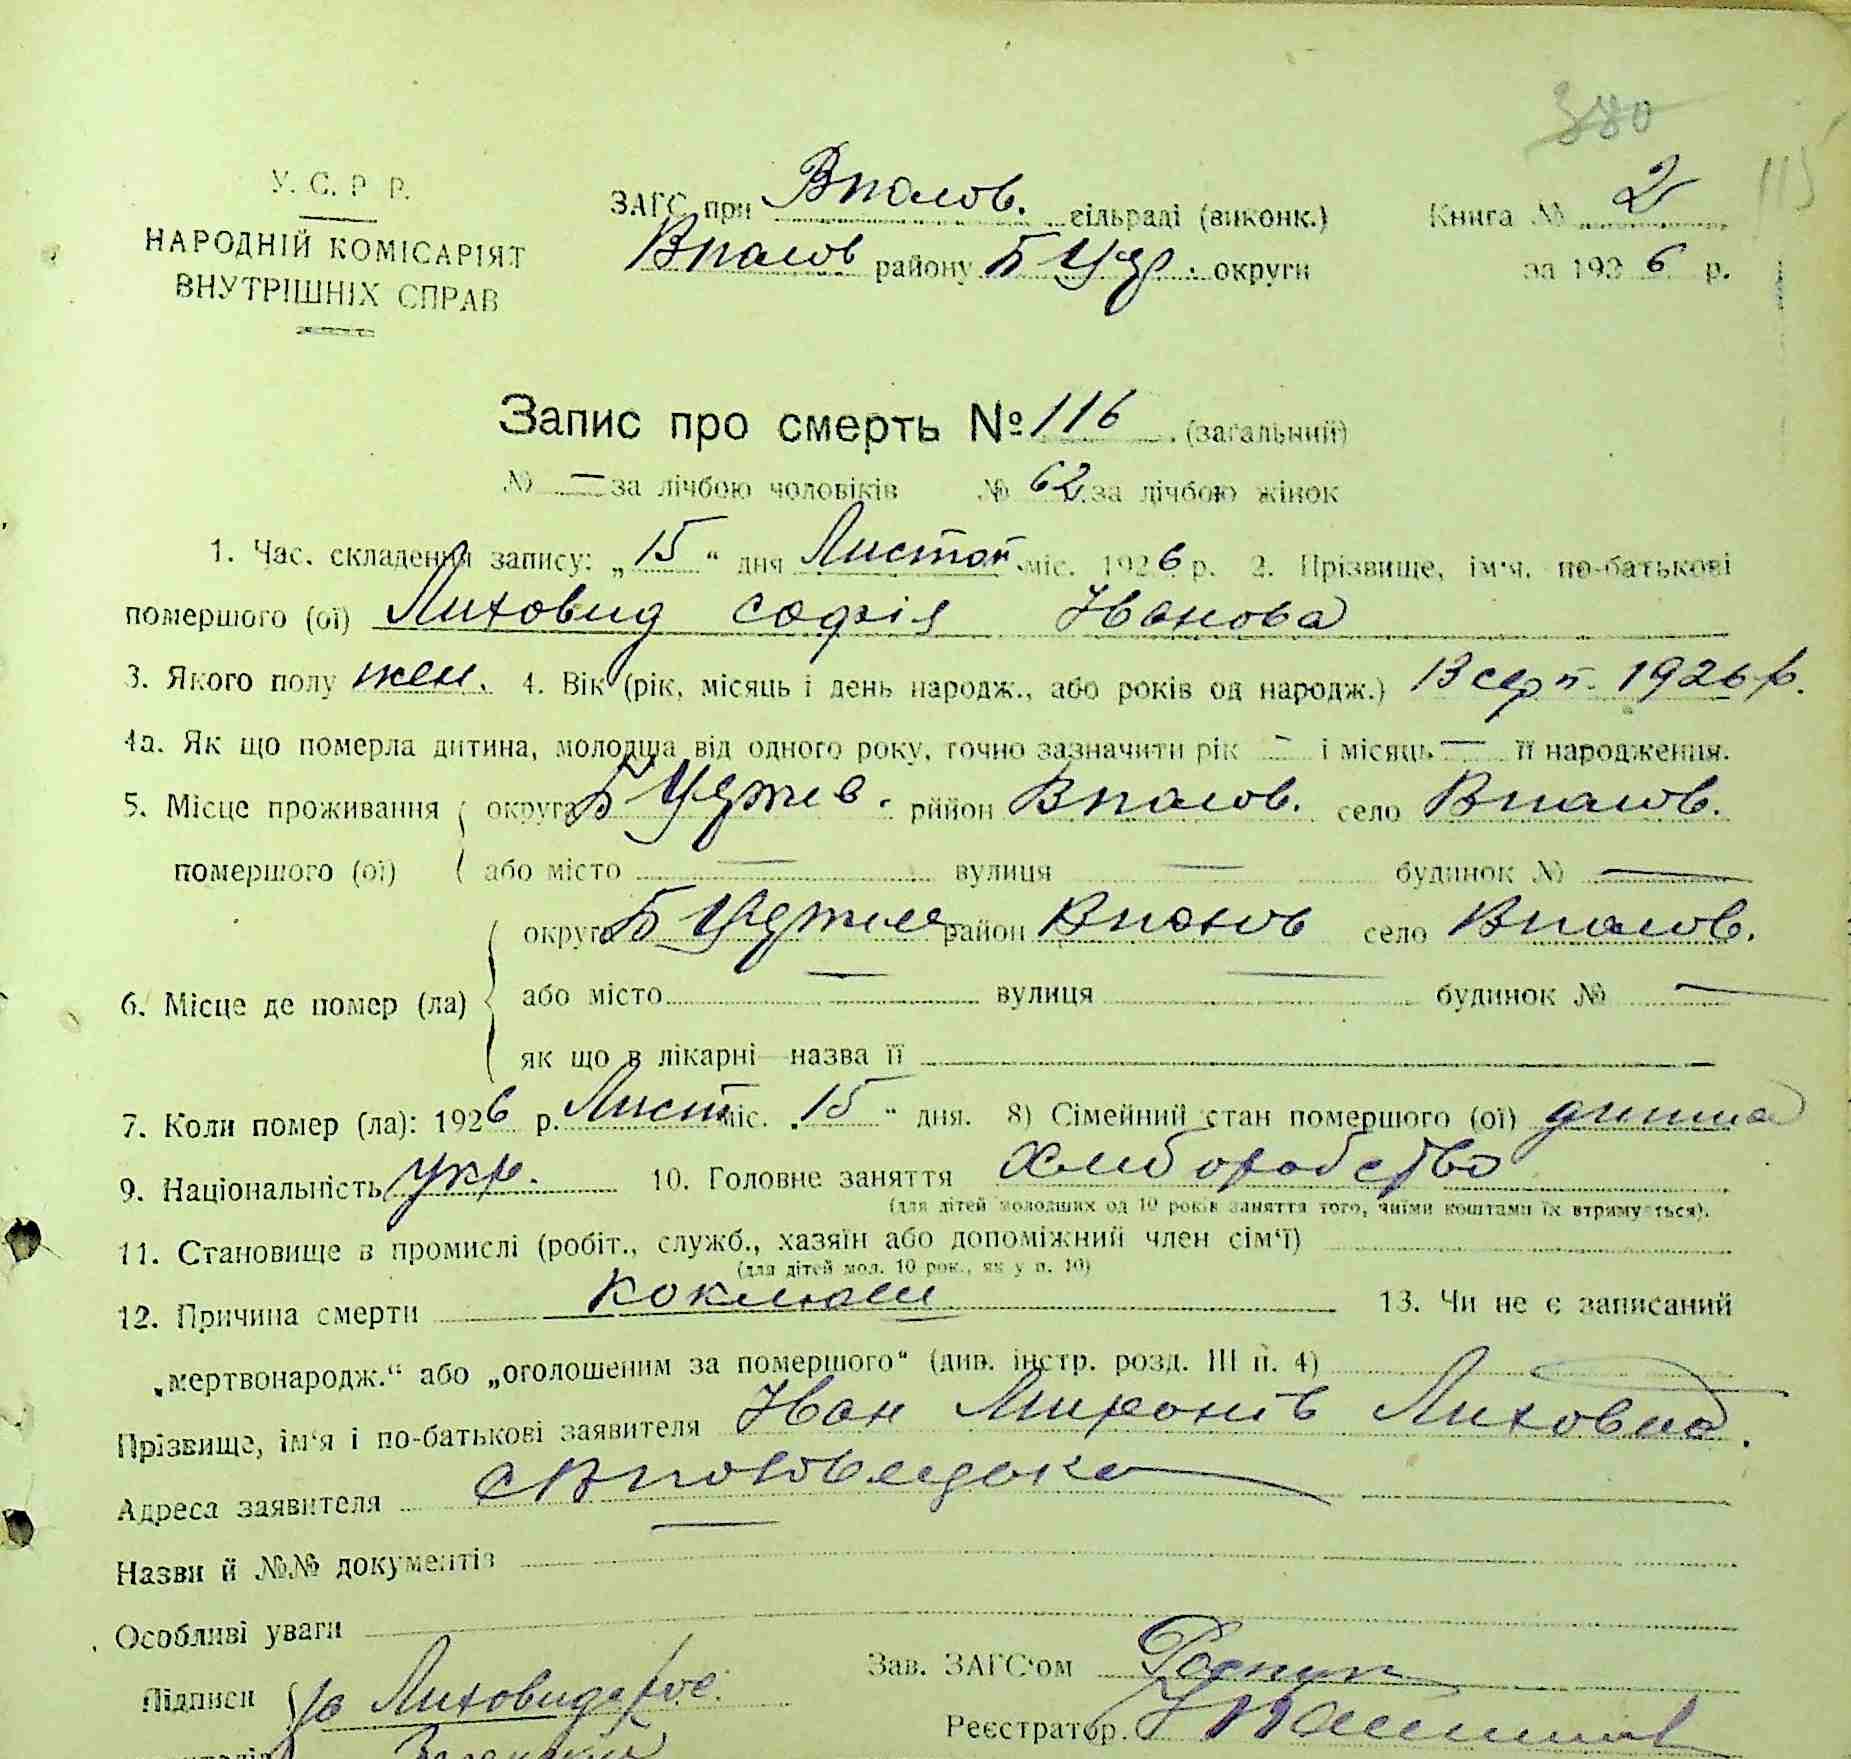 380
115
У. С. Р. Р.
НАРОДНІЙ КОМІСАРІЯТ
ВНУТРІШНІХ СПРАВ
ЗАГС при Вполов. сільраді (виконк.) Книга № 2
Вполов району Б Церк. округи за 1926 р.
Запис про смерть № 116 (загальний)
№ — за лічбою чоловіків № 62 за лічбою жінок
1. Час. складення запису: „15“ дня Листоп. міс. 1926 р. 2. Прізвище, ім'я, по-батькові
помершого (ої) Лиховид Софія Іванова
3. Якого полу жен. 4. Вік (рік, місяць і день народж., або років од народж.) 13 серп. 1926 р.
4а. Як що померла дитина, молодша від одного року, точно зазначити рік — і місяць — її народження.
5. Місце проживання округа Б район Вполов. село Вполов.
помершого (ої) або місто — вулиця — будинок № —
округа Б район Вполов село Вполов.
6. Місце де помер (ла) або місто — вулиця — будинок № —
як що в лікарні—назва її
7. Коли помер (ла): 1926 р. Лист міс. „15“ дня. 8) Сімейний стан помершого (ої) дитина
9. Національність укр. 10. Головне заняття Хліборобство
(для дітей молодших од 10 років заняття того, чиїми коштами їх втримується).
11. Становище в промислі (робіт., служб., хазяїн або допоміжний член сім'ї)
(для дітей мол. 10 рок., як у п. 10)
12. Причина смерти коклюш 13. Чи не є записаний
„мертвонародж.“ або „оголошеним за помершого“ (див. інстр. розд. III п. 4) —
Прізвище, ім'я і по-батькові заявителя Іван Миронів Лиховид.
Адреса заявителя
Назви й №№ документів —
Особливі уваги
Зав. ЗАГС'ом
Підписи за Лиховида
Реєстратор.